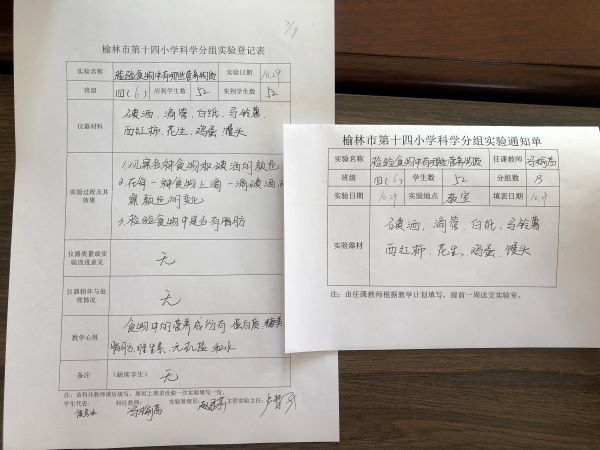 榆林市第十四小学科学分组实验登记表
实验名称 检验食物中有哪些营养物质 实验日期 10.29
班级 四(6) 应到学生数 52 实到学生数 52
仪器材料 碘酒、滴管、白纸、马铃薯、
西红柿、花生、鸡蛋、馒头
实验过程及其效果
1.观察各种食物和碘酒的颜色
2.在每一种食物上滴一滴碘酒,
察颜色的变化
3.检验食物中是否有脂肪
仪器质量或实验改进意见 无
仪器损坏与处理情况 无
教学心得 食物中的营养成份有蛋白质、糖类
脂肪、维生素、无机盐和水
备注 (缺席学生) 无
注:由科任教师课后填写。原则上要求没做一次实验填写一份。
学生代表: 科任教师: 实验管理员: 主管实验主任:
榆林市第十四小学科学分组实验通知单
实验名称 检验食物中有哪些营养物质 任课教师
班级 四(6) 学生数 52 分组数 13
实验日期 10.29 实验地点 教室 填表日期
实验器材 碘酒、滴管、白纸、马铃薯
西红柿、花生、鸡蛋、馒头
注:由任课教师根据教学计划填写,提前一周送交实验室。